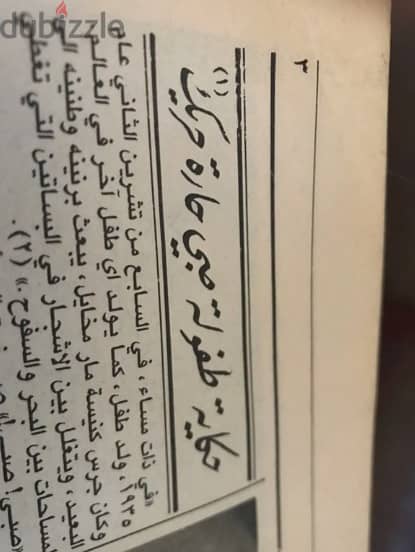 dubizzle
٣
حكاية طفولة صبي حارة حريك (١)
«في ذات مساء، في السابع من تشرين الثاني عام
١٩٣٥، ولد طفل، كما يولد اي طفل آخر في العالم
وكان جرس كنيسة مار مخايل، يبعث برنينه وطنينه الى
البعيد، ويتغلل بين الاشجار في البساتين التي تغطي
المساحات بين البحر والسفوح.» (٢).
«صبي! صبي!»